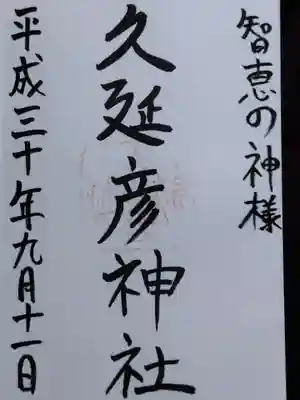 智恵の神様
久延彦神社
平成三十年九月十一日